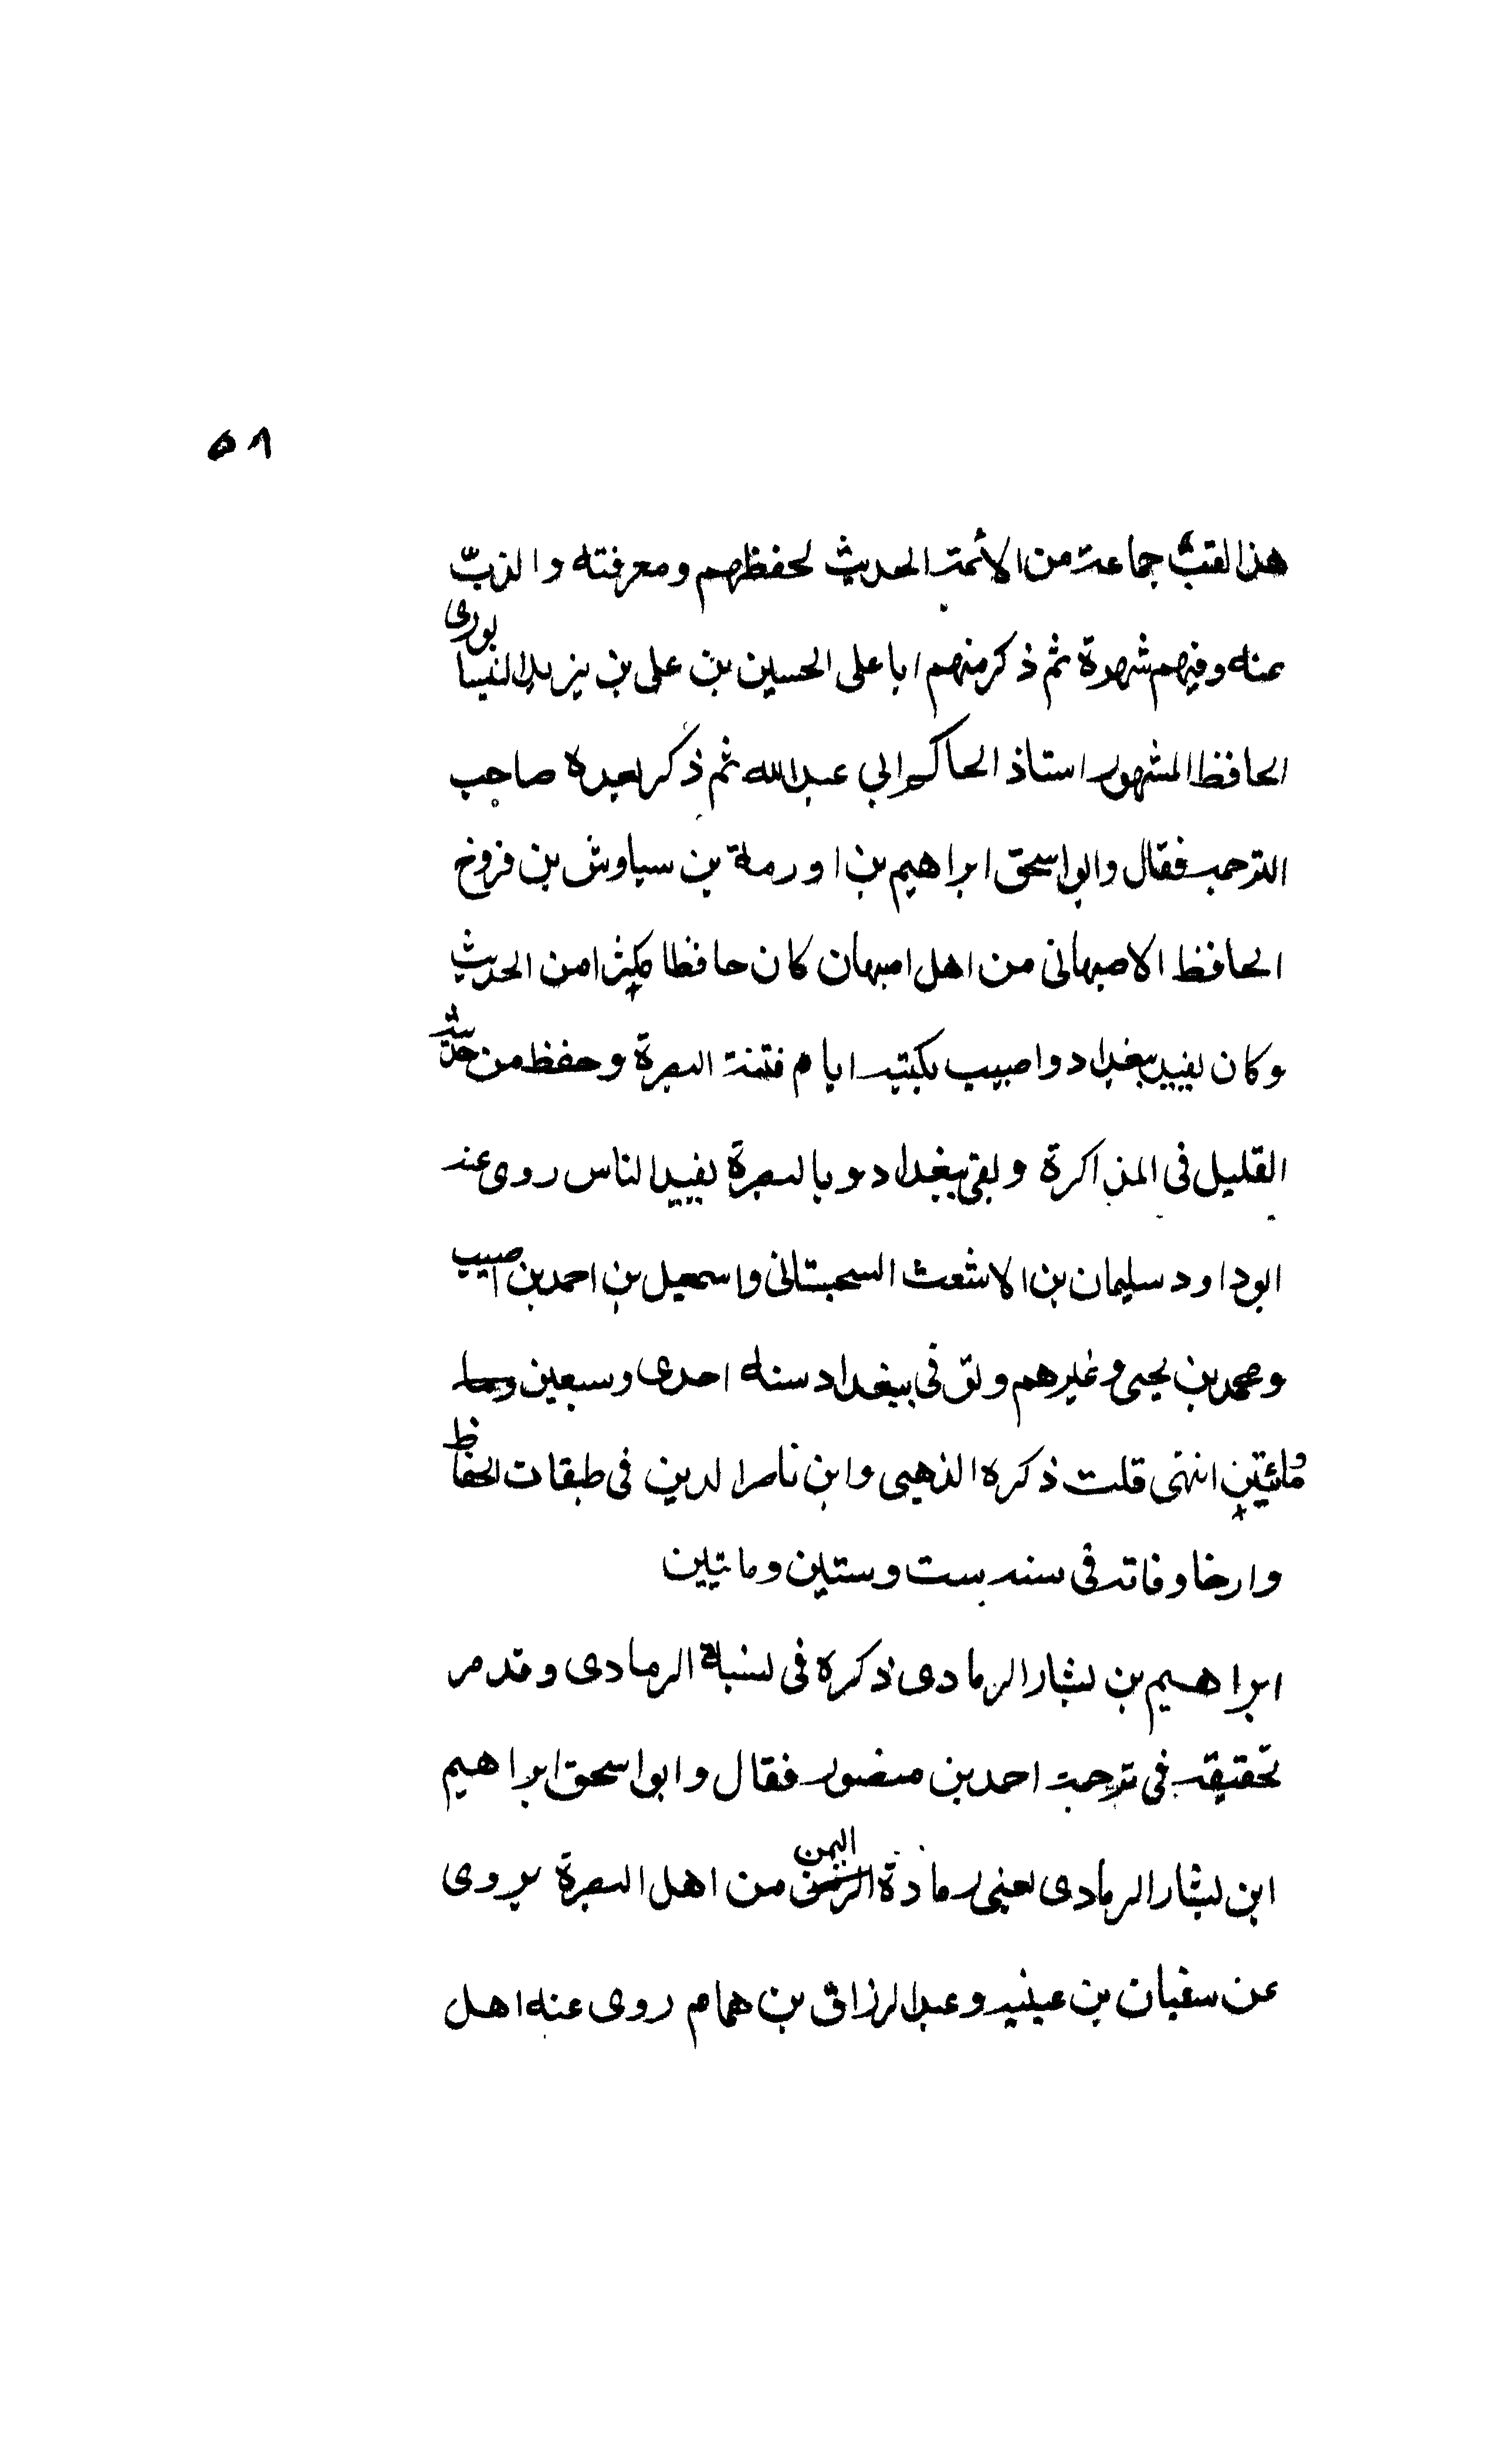 ٥٨
هذا لقب جماعة من الأئمة الحديث لحفظهم ومعرفته والذبّ
عنه وفيهم شهرة ثم ذكر منهم ابا على الحسين بن على بن يزيد النيسابورى
الحافظ المشهور استاذ الحاكم ابي عبد الله ثم ذكر بعده صاحب
الترجمة فقال وابو اسحق ابراهيم بن اورمة بن سياوش بن فروخ
الحافظ الاصبهانى من اهل اصبهان كان حافظا مكثرا من الحديث
وكان يفيد ببغداد واصيب بكتبه ايام فتنة البصرة وحفظ من حديثه
القليل فى المذاكرة وبقى ببغداد وبالبصرة يفيد الناس روى عنه
ابو داود سليمان بن الاشعث السجستانى واسمعيل بن احمد بن اصيب
ومحمد بن يحيى وغيرهم وتوفى ببغداد سنة احدى وسبعين وما
ومائتين انتهى قلت ذكره الذهبى وابن ناصر الدين فى طبقات الحفاظ
وارخا وفاته فى سنة ست وستين وماتيين
ابراهيم بن بشار الرمادى ذكره فى نسبة الرمادى وقدمر
تحقيقه فى ترجمة احمد بن منصور فقال وابو اسحق ابراهيم
ابن بشار الرمادى يعنى رمادة اليمن من اهل البصرة يروى
عن سفيان بن عيينه وعبد الرزاق بن همام روى عنه اهل